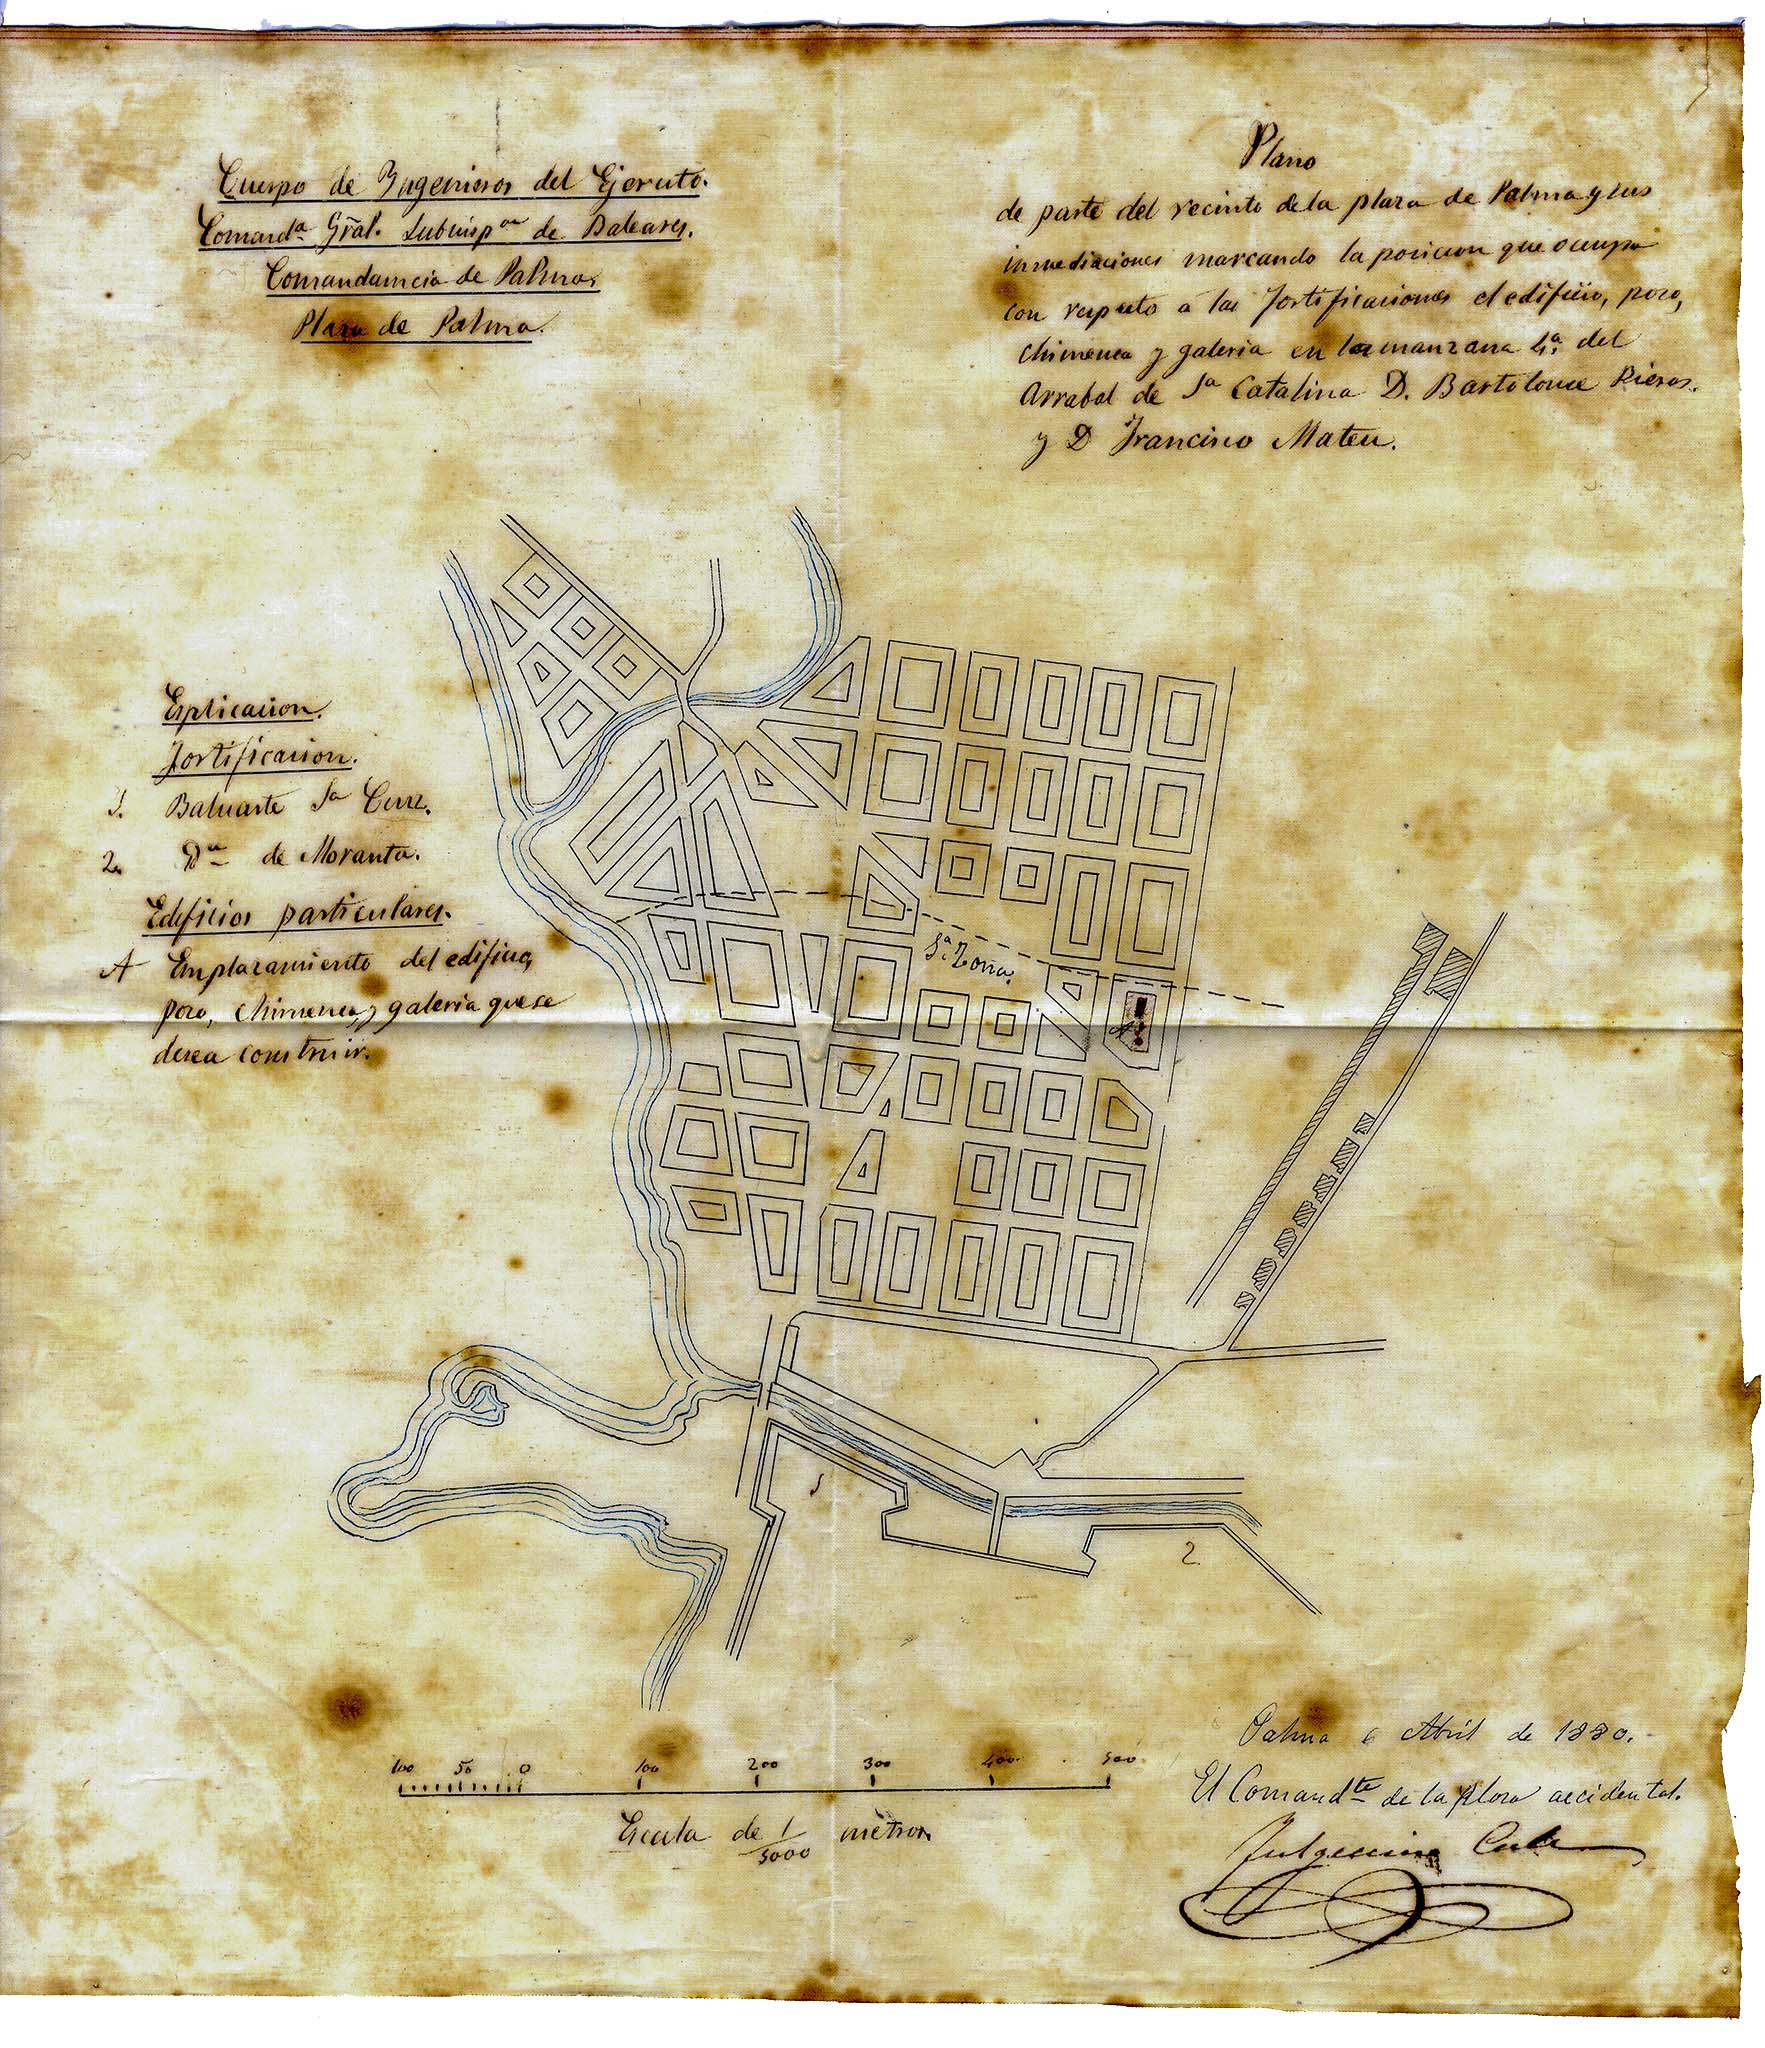 Cuerpo de Ingenieros del Ejercito.
Comand.ª Gral. Subinsp.on de Baleares.
Comandancia de Palma.
Plaza de Palma.
Plano
de parte del recinto de la plaza de Palma y sus
inmediaciones marcando la posicion que ocupa
con respecto á las fortificaciones el edificio, pozo,
chimenea y galeria en la manzana 4ª. del
Arrabal de Sª Catalina D. Bartolome Rieras.
y D Francisco Mateu.
Esplicacion.
Fortificacion.
1. Baluarte Sª Cruz.
2. Dª de Moranta.
Edificios particulares.
A Emplazamiento del edificio,
pozo, chimenea, y galeria que se
desea construir.
Zona.
A
1
2
100 50 0 100 200 300 400 500
Escala de 1/5000 metros
Palma 6 Abril de 1880.
El Comandte de la plaza accidental.